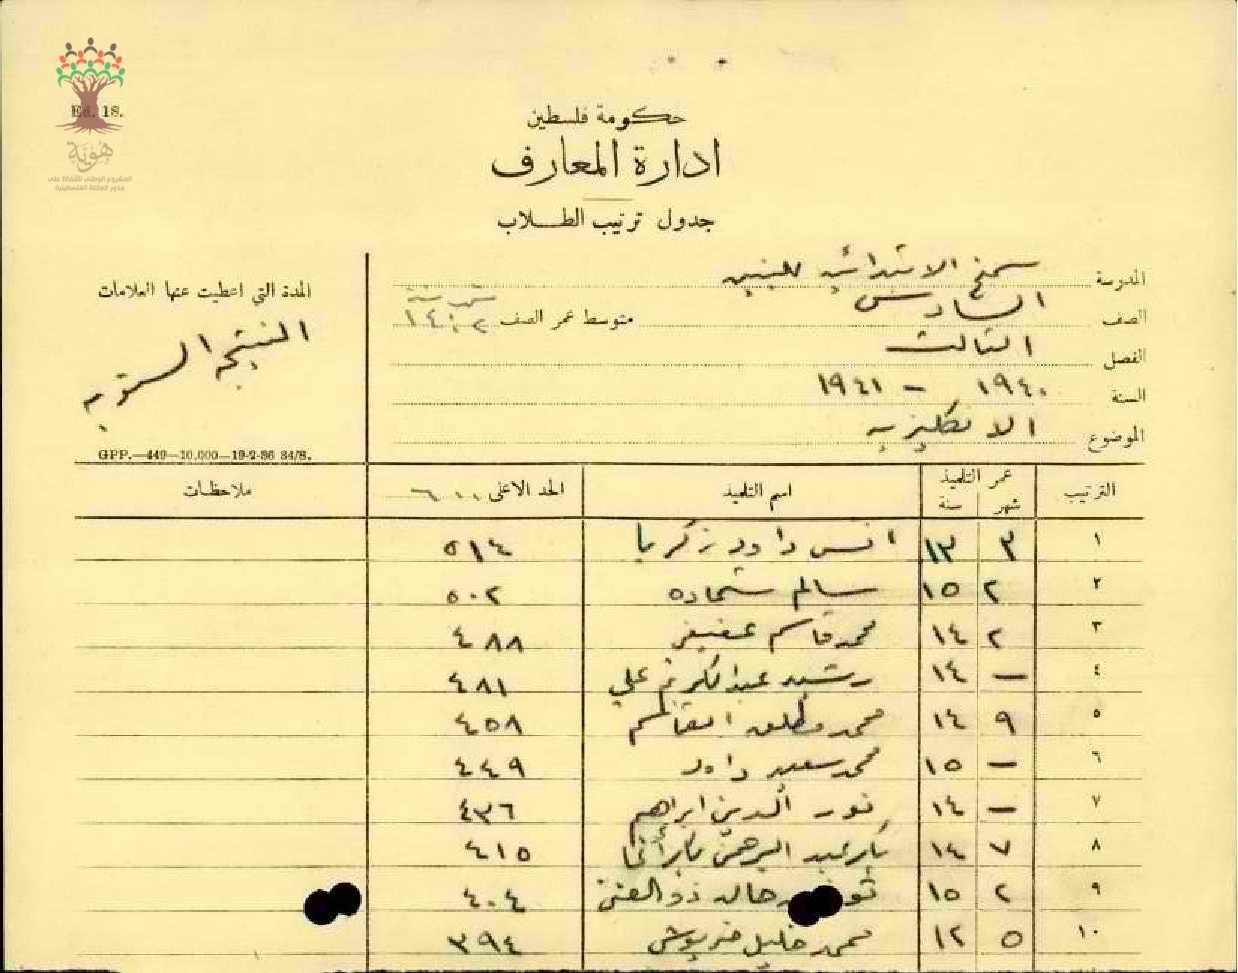 Ed. 18.
هوية
المشروع الوطني للحفاظ على
جذور العائلة الفلسطينية
حكومة فلسطين
ادارة المعارف
جدول ترتيب الطلاب
المدرسة سمخ الابتدائيه للبنين
الصف السادس متوسط عمر الصف ١٤
الفصل الثالث
السنة ١٩٤٠ – ١٩٤١
الموضوع الانكليزيه
المدة التي اعطيت عنها العلامات
النتيجه السنويه
GPP.—449—10,000—19-2-36 84/8.
الترتيب عمر التلميذ شهر سنة اسم التلميذ الحد الاعلى ٦٠٠ ملاحظات
١ ٣ ١٣ انس داود زكريا ٥١٤
٢ ٢ ١٥ سالم شحاده ٥٠٢
٣ ٢ ١٤ محمد قاسم عفيفي ٤٨٨
٤ — ١٤ رشيد عبد الكريم علي ٤٨١
٥ ٩ ١٤ محمد مطلق القاسم ٤٥٨
٦ — ١٥ محمد سعيد داود ٤٤٩
٧ — ١٤ نور الدين ابراهيم ٤٣٦
٨ ٧ ١٤ بكر عبد الرحمن ٤١٥
٩ ٢ ١٥ ذو الغنى ٤٠٤
١٠ ٥ ١٢ محمد خليل ٣٩٤